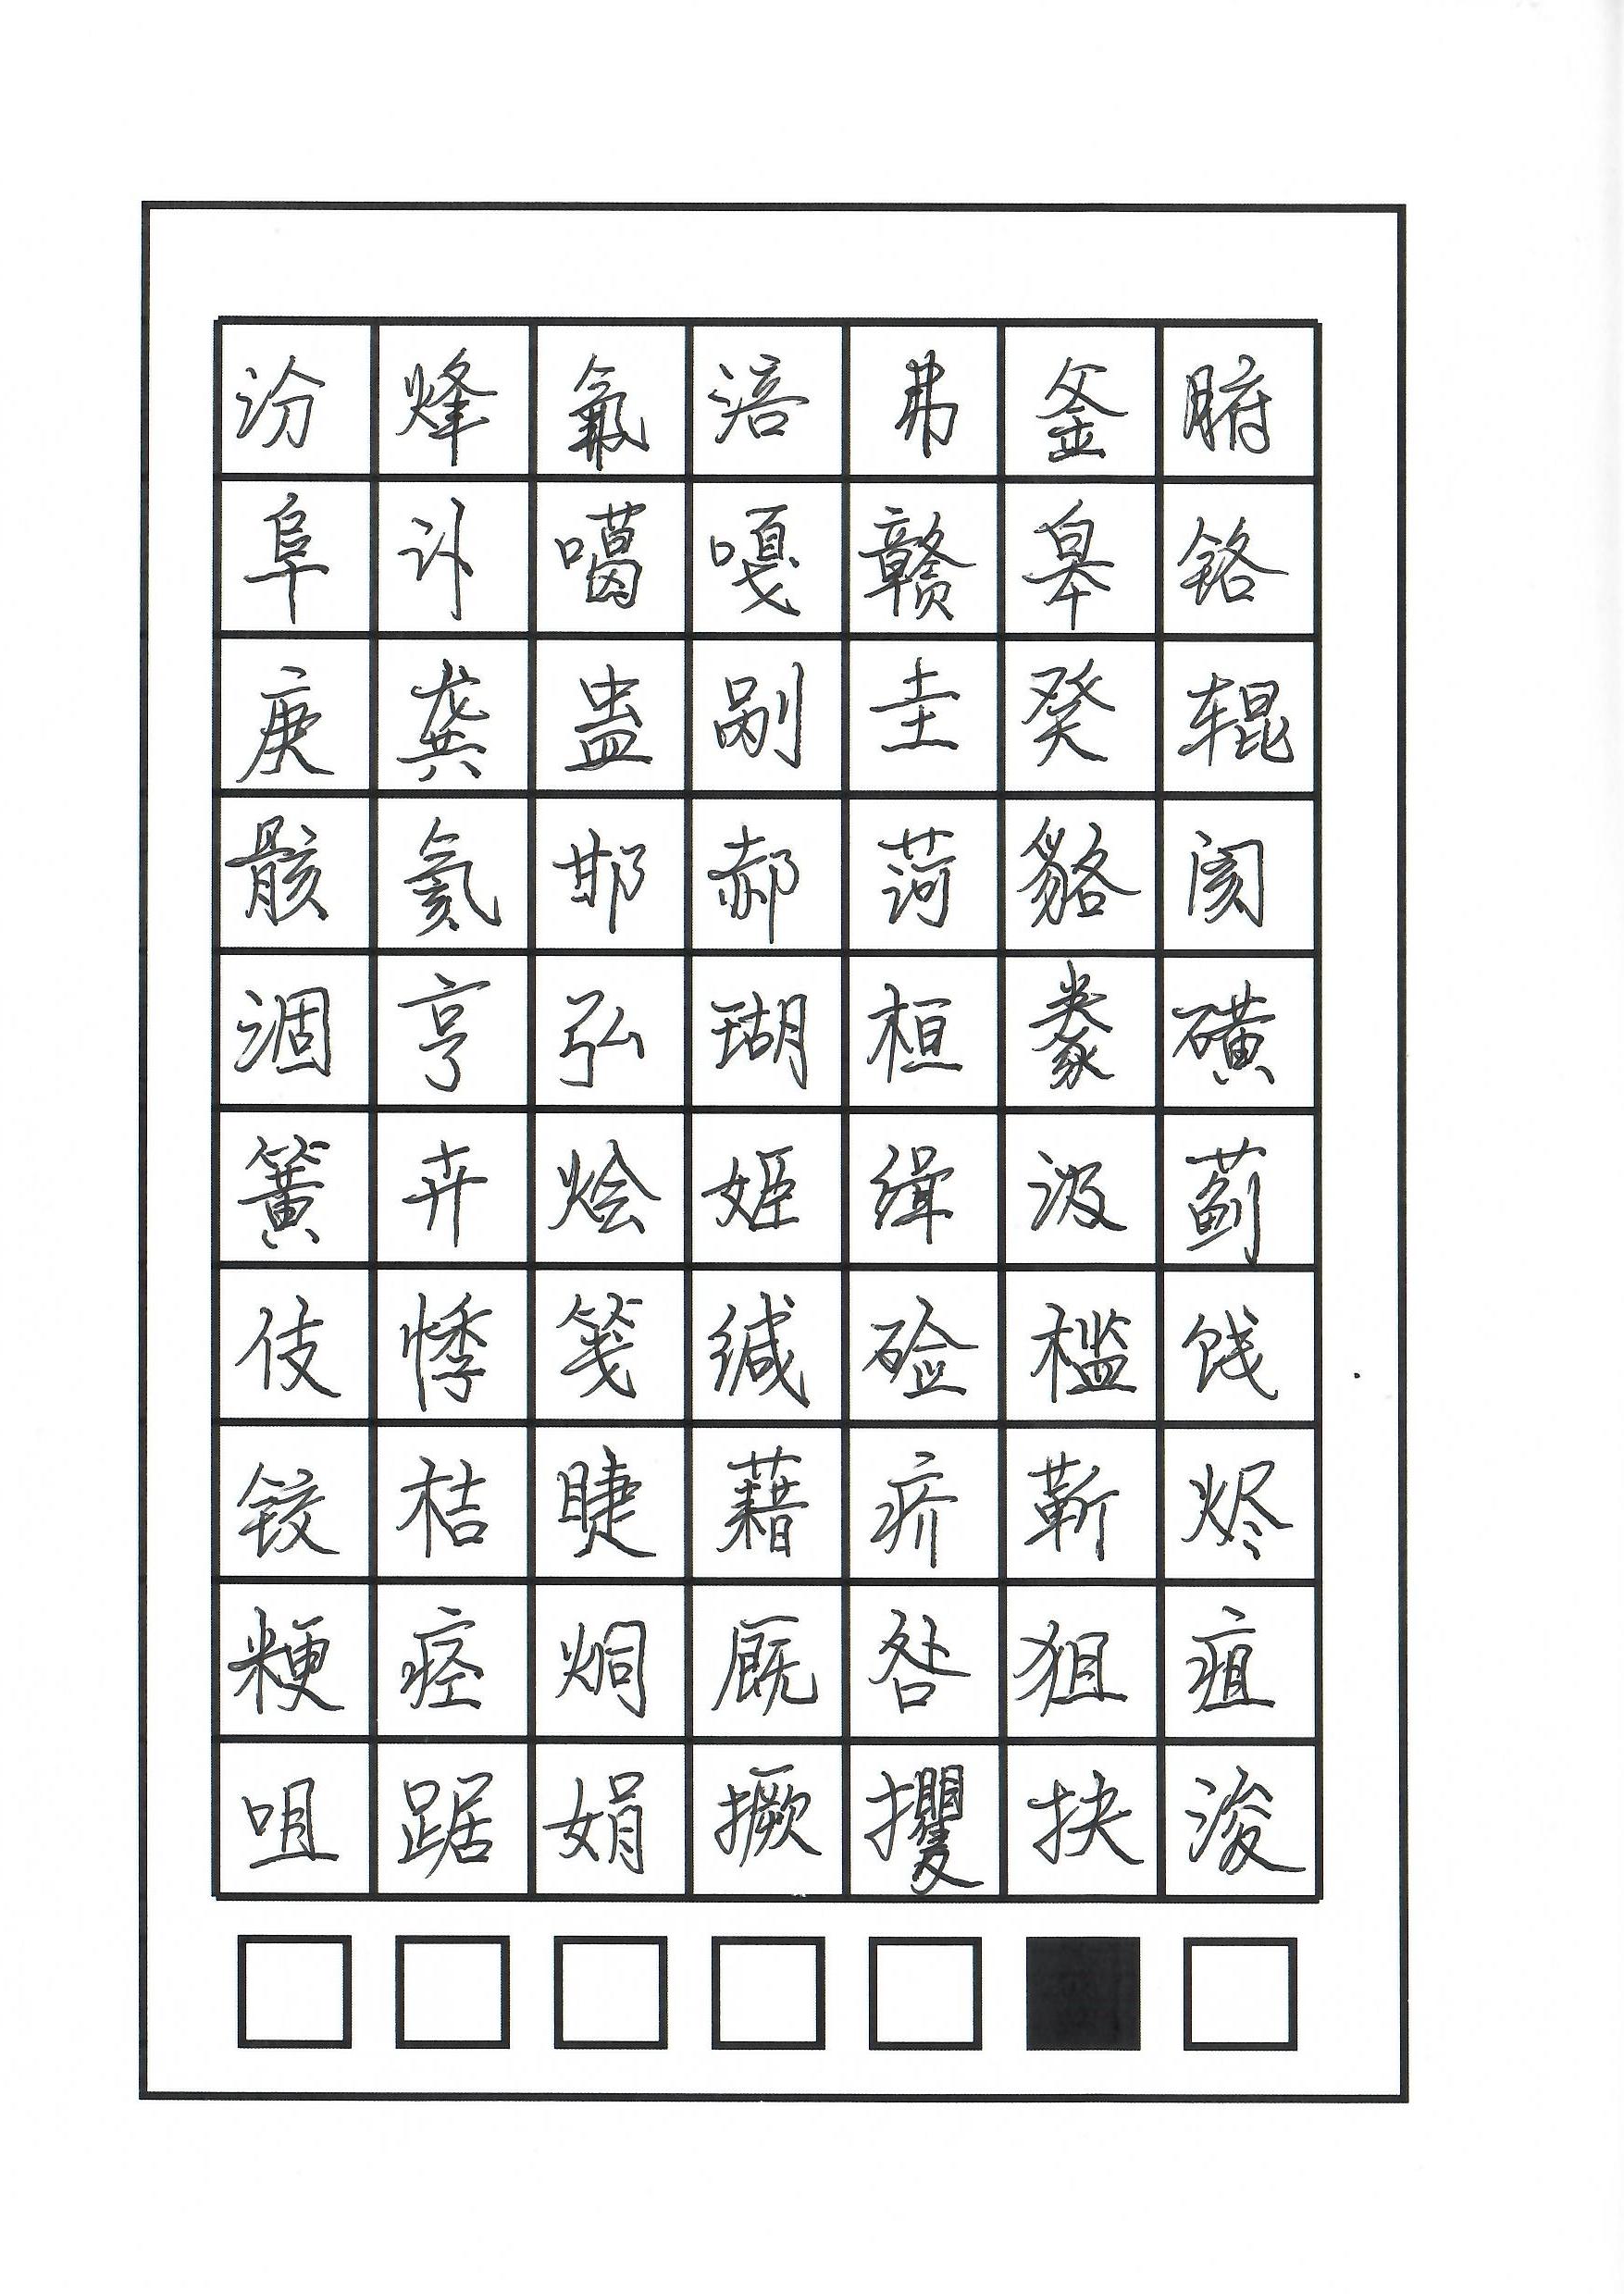 汾烽氟涪弗釜腑
阜讣噶嘎赣皋铬
庚龚蛊剐圭癸辊
骸氦邯郝菏貉阂
涸亨弘瑚桓豢磺
簧卉烩姬缉汲蓟
伎悸笺缄硷槛饯
铰桔睫藉疥靳烬
粳痉炯厩咎狙疽
咀踞娟撅攫抉浚